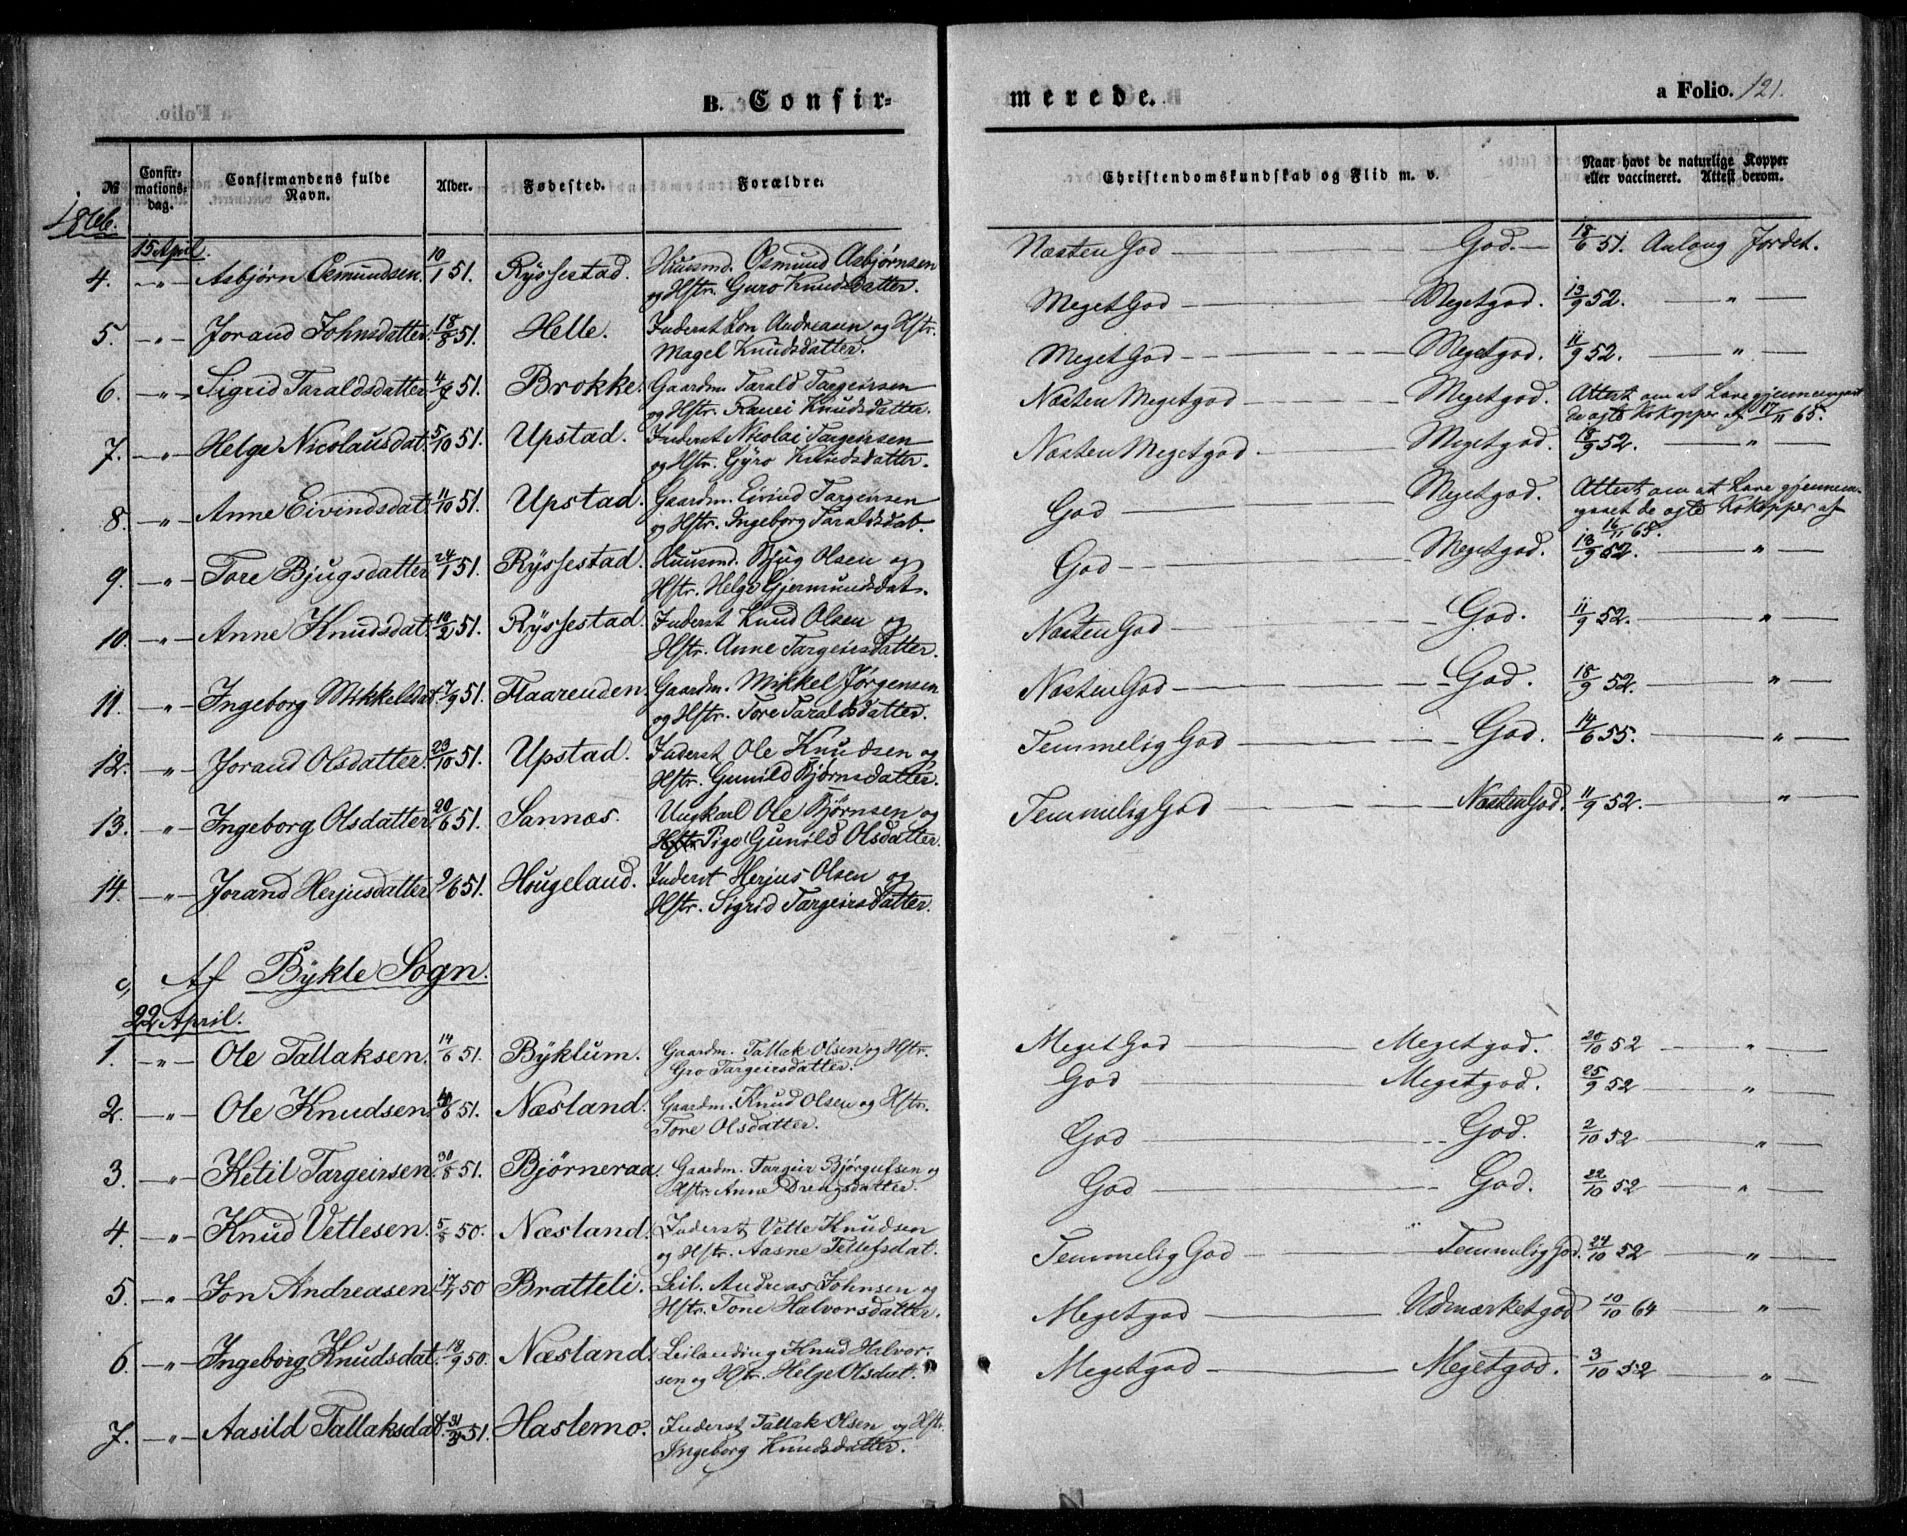 B. Confir-
merede.
a Folio. 121.
№
Confir-
mations-
dag.
Confirmandens fulde
Navn.
Alder.
Fødested.
Forældre.
Christendomskundskab og Flid m. v.
Naar havt de naturlige Kopper
eller vaccineret. Attest derom.
1866.
15 April
4. -"- Asbjørn Osmundsen. 10/1 51. Ryssestad. Huusmd. Osmund Asbjørnsen
og Hstr. Guro Knudsdatter.
Næsten God — God. — 18/6 51. Aalaug Jordet.
5. -"- Jorand Johnsdatter. 18/8 51. Helle. Inderst Jon Andreasen og Hstr.
Magel Knudsdatter.
Meget God — Megetgod. 13/9 52. — " —
6. -"- Sigrid Taraldsdatter 4/7 51. Brokke. Gaardm. Tarald Targeirsen
og Hstr. Ranei Knudsdatter.
Meget God — Megetgod. 11/9 52. — " —
7. -"- Helge Nicolausdat. 5/10 51. Upstad. Inderst Nicolai Targeirsen
og Hstr. Gyro Knudsdatter.
Næsten Megetgod — Megetgod. Attest om at have gjennemgaaet
de ægte Kokopper af 17/11 65.
8. -"- Anne Eivindsdat. 11/10 51. Upstad. Gaardm. Eivind Targeirsen
og Hstr. Ingeborg Taraldsdat.
Næsten Megetgod. — Megetgod. 18/9 52. — " —
9. -"- Tore Bjugsdatter 24/1 51. Ryssestad. Huusmd. Bjug Olsen og
Hstr. Helge Gjermundsdat.
God — Megetgod. Attest om at have gjennem-
gaaet de ægte Kokopper af
16/11 65.
10. -"- Anne Knudsdat. 18/2 51. Ryssestad. Inderst Knud Olsen og
Hstr. Anne Targeirsdatter.
God — Megetgod. 18/9 52. — " —
11. -"- Ingeborg Mikkelsdat. 7/9 51. Flaarenden. Gaardm. Mikkel Jørgensen
og Hstr. Tore Taraldsdatter.
Næsten God — God. 11/9 52. — " —
12. -"- Jorand Olsdatter. 23/10 51. Upstad. Inderst Ole Knudsen og
Hstr. Gunild Bjørnsdatter.
Næsten God — God. 18/9 52. — " —
13. -"- Ingeborg Olsdatter. 20/6 51. Sannæs. Ungkarl Ole Bjørnsen og
Hstr. Pige Gunild Olsdatter.
Temmelig God — God. 14/6 55. — " —
14. -"- Jorand Herjusdatter. 9/6 51. Hougeland. Inderst Herjus Olsen og
Hstr. Sigrid Targeirsdatter.
Temmelig God — Næsten God. 11/9 52. — " —
c, Af Bykle Sogn.
22 April.
1. -"- Ole Tallaksen. 14/6 51. Byklum. Gaardm. Tallak Olsen og Hstr.
Gro Targeirsdatter.
Meget God — Megetgod. 20/10 52 — "
2. -"- Ole Knudsen. /6 51. Næsland. Gaardm. Knud Olsen og Hstr.
Tore Olsdatter.
God — Megetgod. 25/9 52 — "
3. -"- Ketil Targeirsen 30/8 51. Bjørneraa. Gaardm. Targeir Bjørgufsen og
Hstr. Anne Drengsdatter.
God — God. 2/10 52 — "
4. -"- Knud Vetlesen. 5/8 50. Næsland. Inderst Vetle Knudsen
og Hstr. Aasne Tellefsdat.
God — God. 22/10 52 — "
5. -"- Jon Andreasen 17/1 50 Bratteli. Leil. Andreas Johnsen og
Hstr. Tone Halvorsdatter.
Temmelig God — Temmelig God. 24/10 52 — "
6 -"- Ingeborg Knudsdat. 18/9 50. Næsland. Leilænding Knud Halvor-
sen og Hstr. Helge Olsdat.
Megetgod — Udmærketgod 10/10 64 — "
7. -"- Aasild Tallaksdat. 31/3 51. Haslemo. Inderst Tallak Olsen og Hstr.
Ingeborg Knudsdatter.
Megetgod — Megetgod. 3/10 52 — "